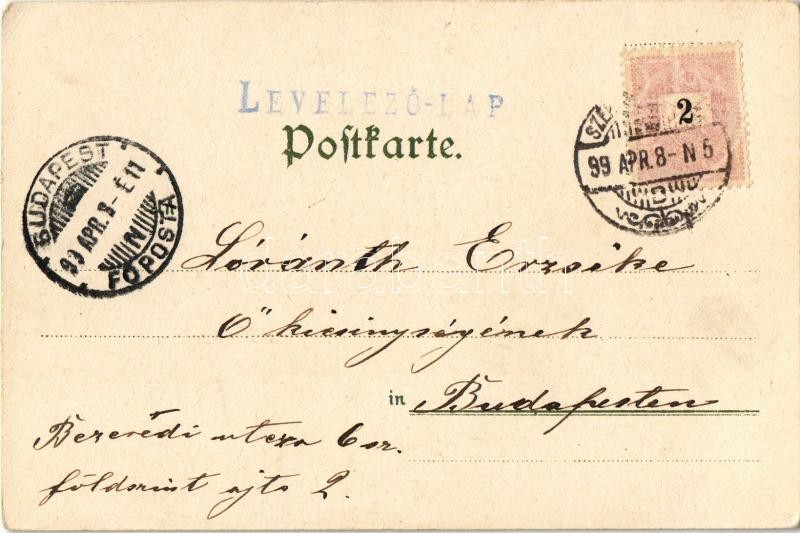 LEVELEZŐ-LAP
Postkarte.
2
SZE
99 APR. 8 - N 5
BUDAPEST
99 APR. 8 - E 11
N
FŐPOSTA
Lóránth Erzsike
Ő kicsinységének
in Budapesten
Bezerédi utcza 6 sz.
földszint ajtó 2.
darabanth